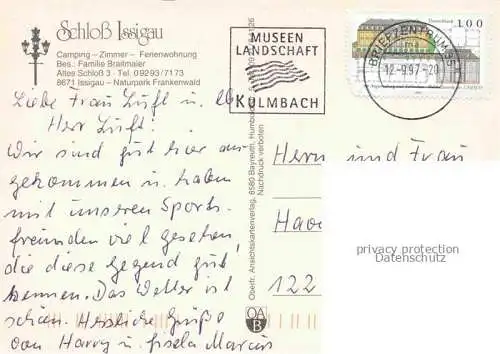 Schloß Issigau
Camping – Zimmer – Ferienwohnung
Bes.: Familie Braitmaier
Altes Schloß 3 · Tel. 09293/7173
8671 Issigau – Naturpark Frankenwald
Liebe Frau Luft u.
Herr Luft!
Wir sind gut hier an-
gekommen u. haben
mit unseren Sports-
freunden viel gesehen,
die diese Gegend gut
kennen. Das Wetter ist
schön. Herzliche Grüße
von Harry u. Gisela Marcus
MUSEEN
LANDSCHAFT
KULMBACH
BRIEFZENTRUM 95
12.-9.97-20
Deutschland
100
Oberfr. Ansichtskartenverlag, 8580 Bayreuth,
Nachdruck verboten
OA
B
Herrn und Frau
122
privacy protection
Datenschutz